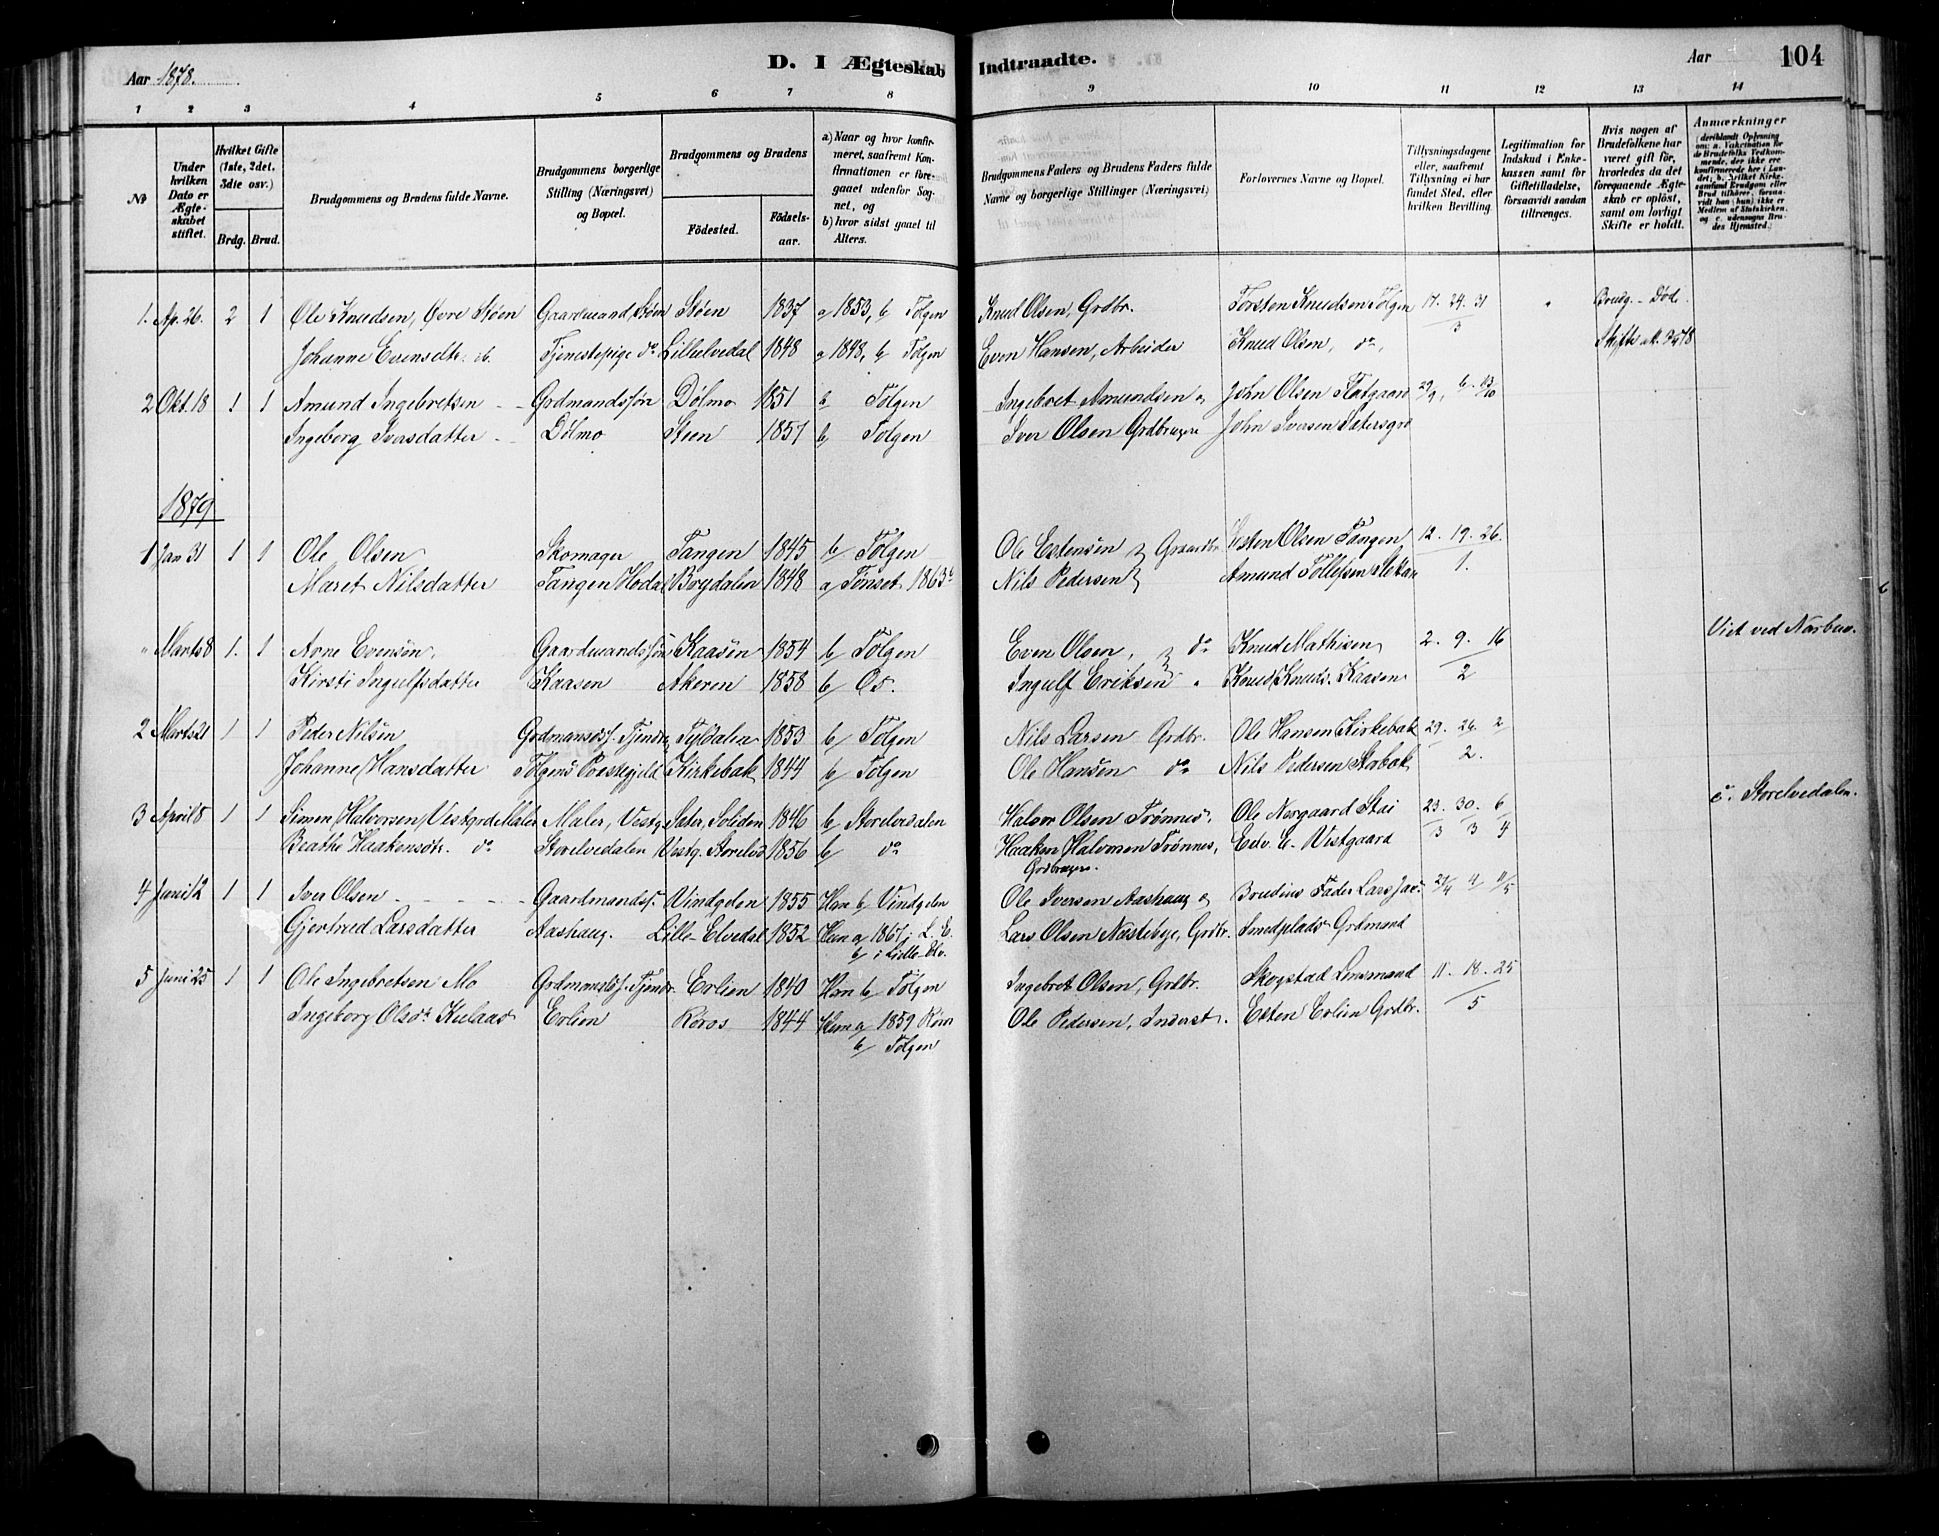 Aar 1878.
D. I Ægteskab Indtraadte.
Aar
104
1 2 3 4 5 6 7 8 9 10 11 12 13 14
№
Under hvilken Dato er Ægteskabet stiftet.
Hvilket Gifte (1ste, 2det, 3die osv.)
Brdg. Brud.
Brudgommens og Brudens fulde Navne.
Brudgommens borgerlige Stilling (Næringsvei) og Bopæl.
Brudgommens og Brudens
Fødested.
Fødselsaar.
a) Naar og hvor konfirmeret, saafremt Konfirmationen er foregaaet udenfor Sognet, og
b) hvor sidst gaaet til Alters.
Brudgommens Faders og Brudens Faders fulde Navne og borgerlige Stillinger (Næringsvei)
Forlovernes Navne og Bopæl.
Tillysningsdagene eller, saafremt Tillysning ei har fundet Sted, efter hvilken Bevilling.
Legitimation for Indskud i Enkekassen samt for Giftetilladelse, forsaavidt saadan tiltrænges.
Hvis nogen af Brudefolkene har været gift før, hvorledes da det foregaaende Ægteskab er opløst, samt om lovligt Skifte er holdt.
Anmærkninger (deriblandt Oplysning om: a. Vakcination for de Brudefolks Vedkommende, der ikke ere konfirmerede her i Landet; b. hvilket Kirkesamfund Brudgom eller Brud tilhører, forsaavidt han (hun) ikke er Medlem af Statskirken, og c. udensogns Brudes Hjemsted.)
1. Ap. 26. 2 1 Ole Knudsen, Øvre Støen Gaardmand, Støen Støen 1837 a 1853, b Tolgen Knud Olsen, Grdbr. Torsten Knudsen Tolgen 17. 24. 31 " Brudg. - Død.
Johanne Evensdtr. Tjenestepige do Lilleelvedal 1848 a 1848, b Tolgen Even Hansen, Arbeider Knud Olsen, do, 3 Skifte
2 Okt. 18 1 1 Amund Ingebretsen Grdmandssøn Dølmo 1851 b Tolgen Ingebret Amundsen og John Olsen Flatgaard 29/9, 6. 13/10
Ingeborg Iversdatter Dølmo Steen 1857 b Tolgen Iver Olsen Grdbrugere John Iversen Sætersgrd
1879
1 Jan 31 1 1 Ole Olsen Skomager Tangen 1845 b Tolgen Ole Estensen Gaardbr. Esten Olsen Tangen 12. 19. 26.
Maret Nilsdatter Tangen Hodal Brydalen 1848 a Tønset 1863 b Nils Pedersen Amund Tollefsen 1.
" Marts 8 1. 1 Arne Evensøn, Gaardmandssøn Kaasen 1854 b Tolgen Even Olsen, do Knud Mathisen 2. 9. 16 Viet ved Narbuv.
Kirsti Ingulfsdatter Kaasen Akeren 1858 b Os. Ingulf Eriksen " Knud Knuds. Kaasen 2
2 Marts 21 1 1 Peder Nilsen Grdmandss. Tjendr. Tyldalen 1853 b Tolgen Nils Larsen Grdbr. Ole Hansen Kirkebak 29. 26. 2
Johanne Hansdatter Tolgens Præstegjeld Kirkebak 1844 b Tolgen Ole Hansen do Nils Pedersen Storbak 2.
3 April 8 1 1 Simen Halvorsen Vestgrd Maler Maler, Vestg. Sater, Soliden 1846 b Storelvedalen Halvor Olsen Trønnes, Ole Nergaard Stai 23. 30. 6 c. Storelvedalen.
Beathe Haakensdtr. do Storelvedalen Vestg. Storelvd 1856 b do Haaken Halvorsen Trønnes, Edv. E. Vestgaard 3 3 4
Grdbrugere.
4 Juni 12 1 1 Iver Olsen Gaardmandss. Vindgelen 1855 Han b Vindgelen Ole Iversen Aashaug og Brudens Fader Lars 27/4 4 11/5
Gjertrud Larsdatter Aashaug. Lille-Elvedal 1852 Hun a 1867 i L. E. Lars Olsen Næsteby, Grdbr. Smedplads Grdmand
b i Lille-Elv.
5 Juni 25 1 1 Ole Ingebretsen Mo Grdmandss. Tjendr. Erlien 1840 Han b Tolgen Ingebret Olsen, Grdbr. Skogstad Lensmand 11. 18. 25
Ingeborg Olsdr. Kulaas Erlien Røros 1844 Hun a 1859 Røros Ole Pedersen, Inderst. Esten Erlien Grdbr. 5
b Tolgen